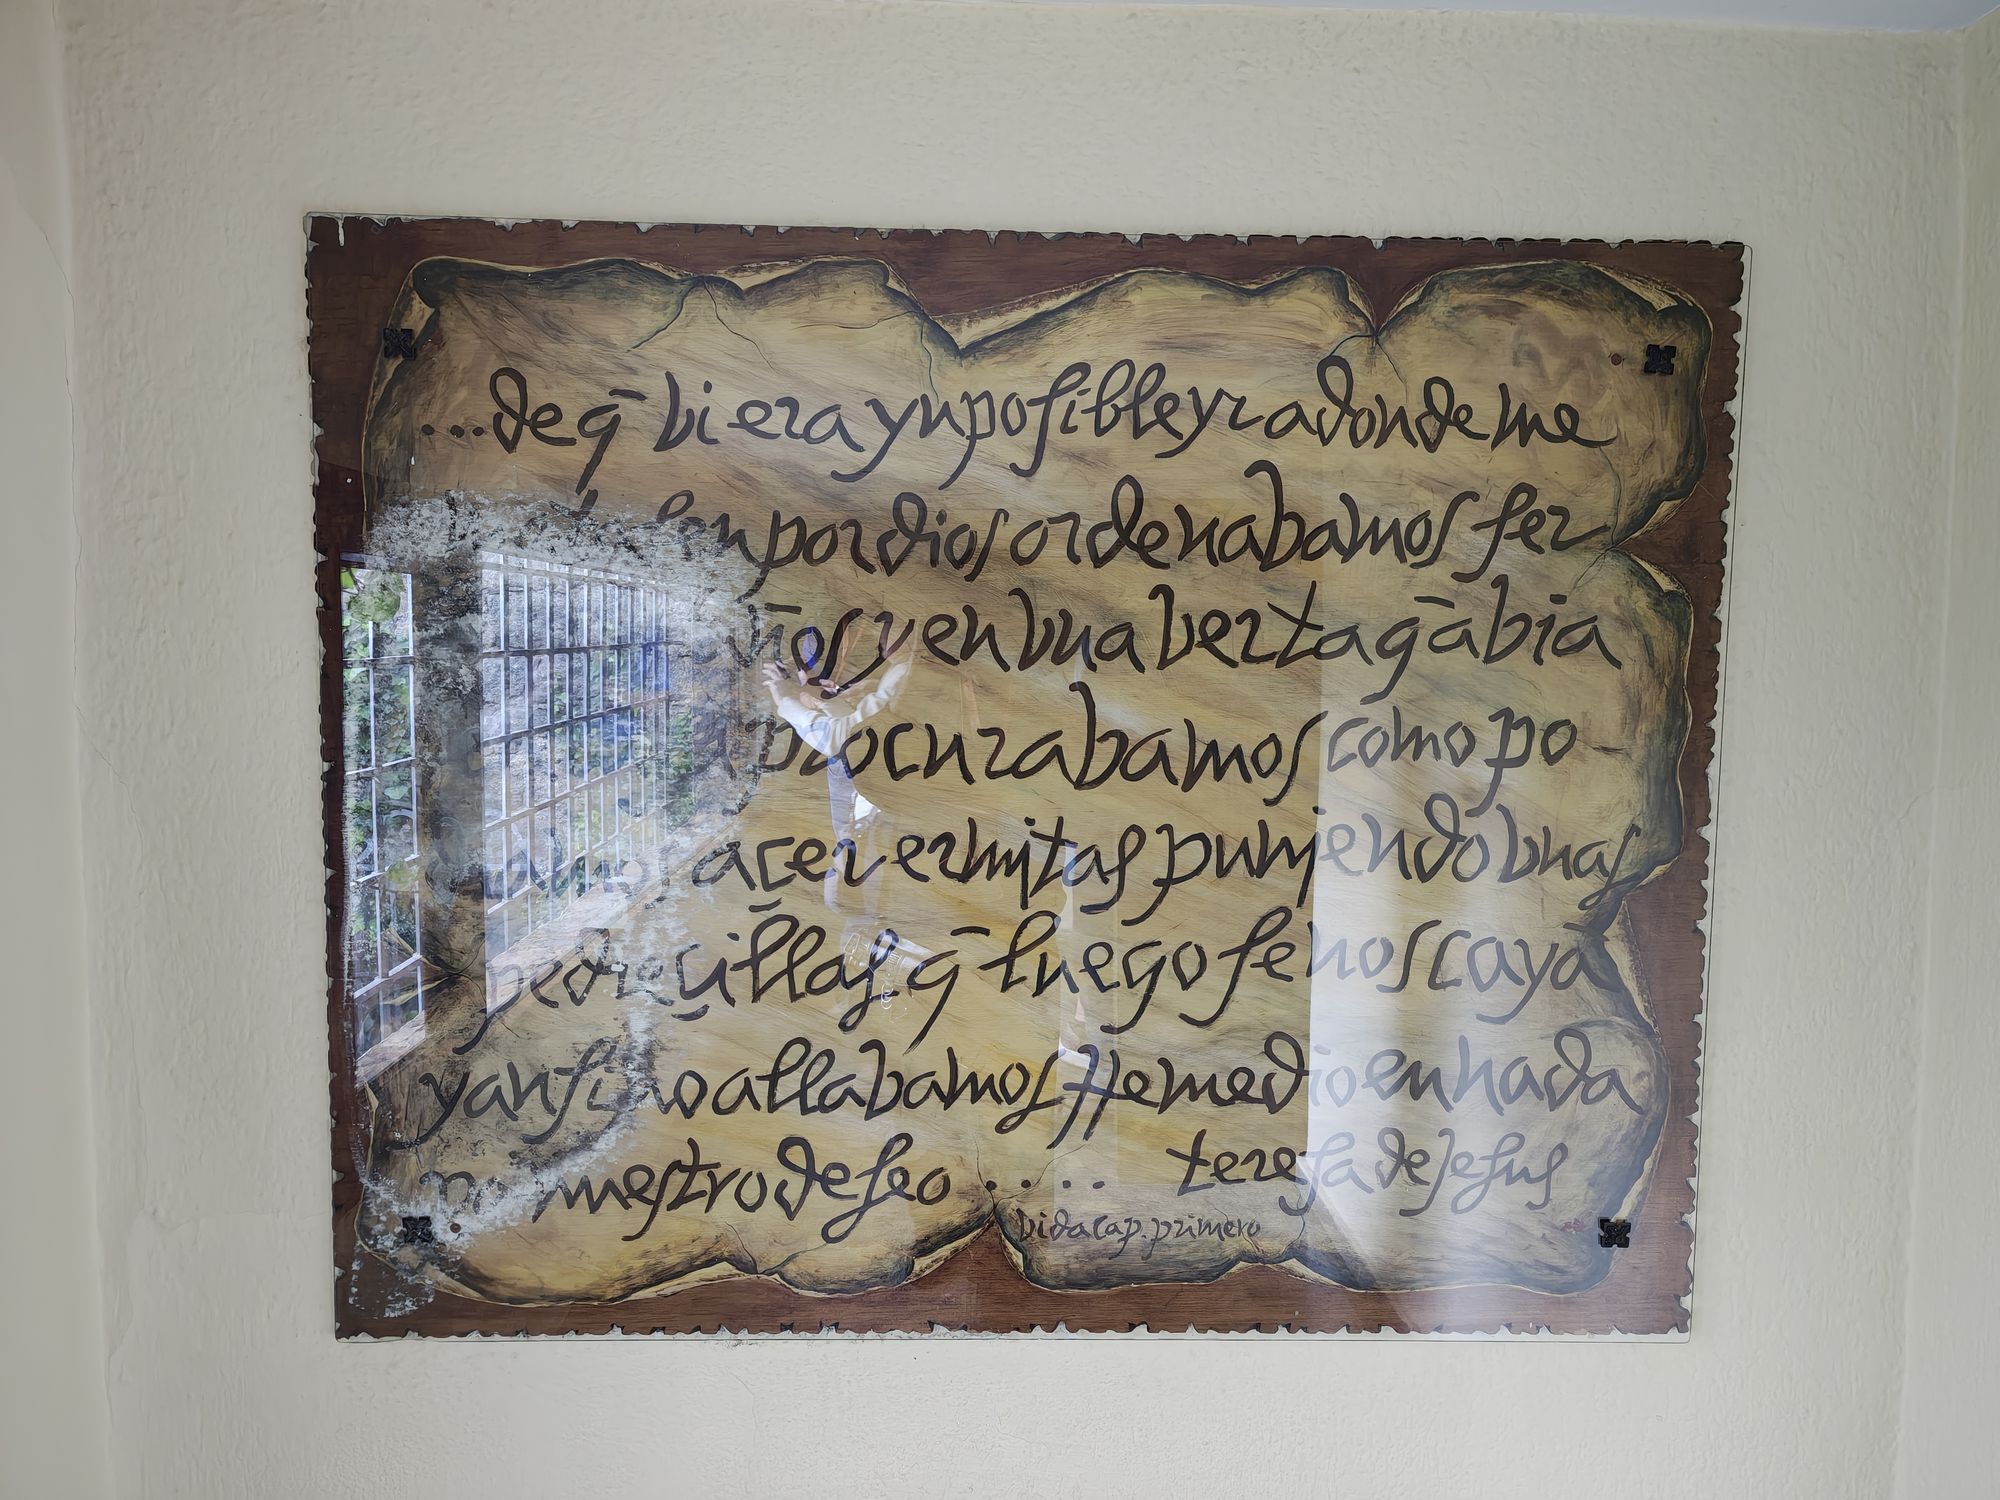 ...de q̄ bi era ynposible yr a donde me
en por dios ordenabamos ser
ños y en bna berta q̄ abia
procurabamos como po
acer ermitas puniendo bnas
pedreçillas q̄ luego se nos cayā
y ansi no allabamos rremedio en nada
nuestro deseo .... teresa de jesus
bida cap. primero